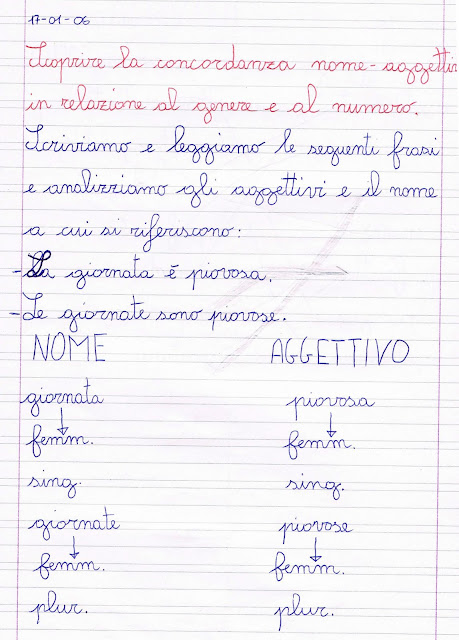 17-01-06
Scoprire la concordanza nome-aggettiv
in relazione al genere e al numero.
Scriviamo e leggiamo le seguenti frasi
e analizziamo gli aggettivi e il nome
a cui si riferiscono:
-La giornata è piovosa.
-Le giornate sono piovose.
NOME AGGETTIVO
giornata piovosa
femm. femm.
sing. sing.
giornate piovose
femm. femm.
plur. plur.